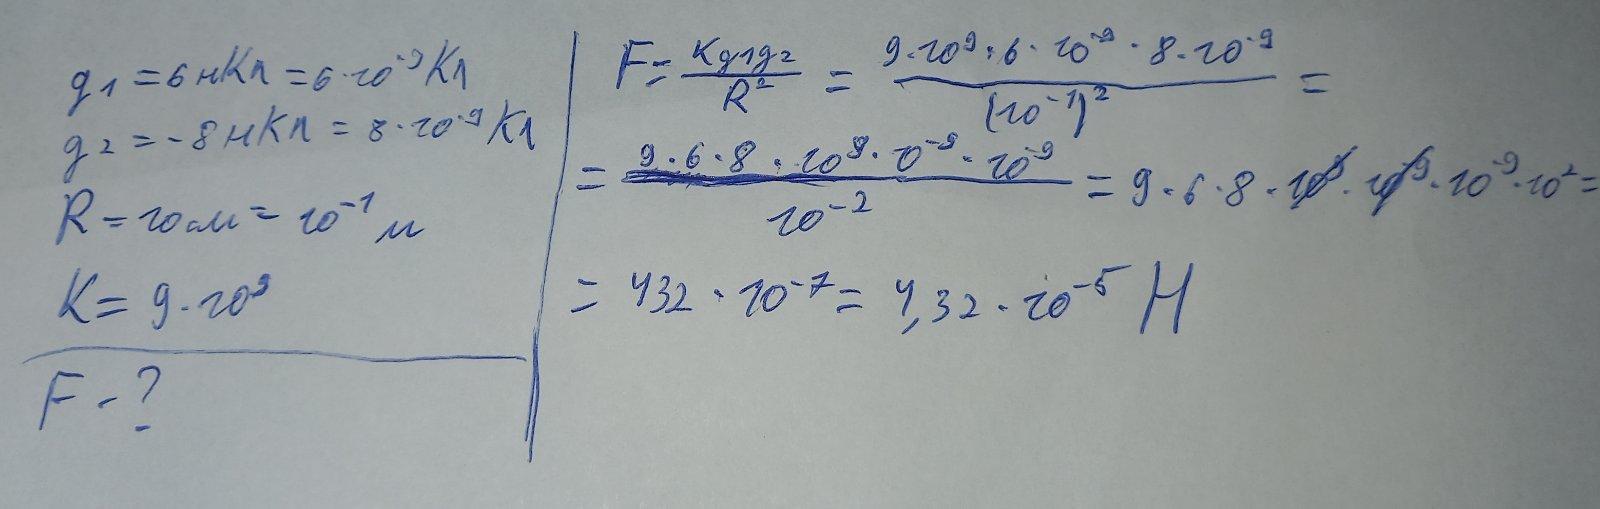 q₁ = 6 нКл = 6·10⁻⁹ Кл
q₂ = -8 нКл = 8·10⁻⁹ Кл
R = 10 см = 10⁻¹ м
K = 9·10⁹
F - ?
F = Kq₁q₂/R² = 9·10⁹·6·10⁻⁹·8·10⁻⁹/(10⁻¹)² =
= 9·6·8·10⁹·10⁻⁹·10⁻⁹/10⁻² = 9·6·8·10⁹·10⁻⁹·10⁻⁹·10² =
= 432·10⁻⁷ = 4,32·10⁻⁵ Н